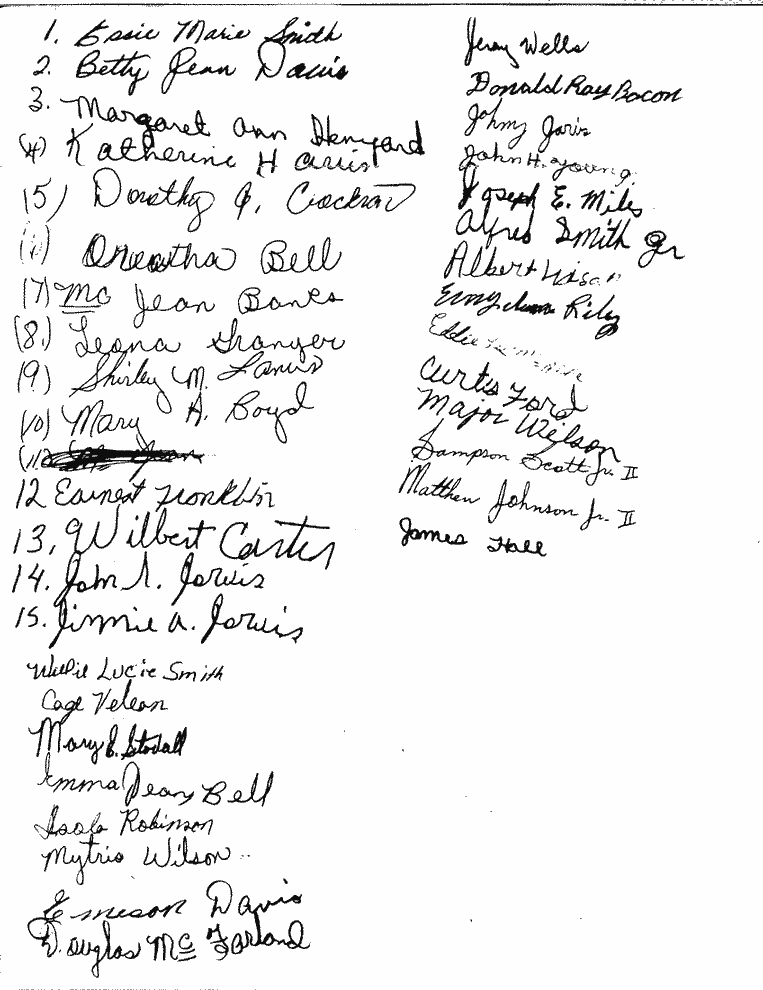 1. Essie Marie Smith
2. Betty Jean Davis
3. Margaret Ann Henyard
(4) Katherine Harris
(5) Dorothy
Oreatha Bell
(7) Mc Jean Banks
(8.) Leona Granger
(9) Shirley M.
(10) Mary A. Boyd
(11)
12 Earnest Franklin
13, Wilbert Carter
14. John L. Jarvis
15. Jimmie A. Jarvis
Willie Lucie Smith
Cage Velean
Mary B. Stovall
Emma Jean Bell
Robinson
Mytris Wilson
Emerson Davis
Douglas Mc Farland
Jeray Wells
Donald Ray Bacon
Johny Jarvis
John H. Young
Joseph E. Miles
Alfred Smith Jr
Albert
Riley
Eddie
Curtis Ford
Major Wilson
Sampson Scott Jr. II
Matthew Johnson Jr. II
James Hall